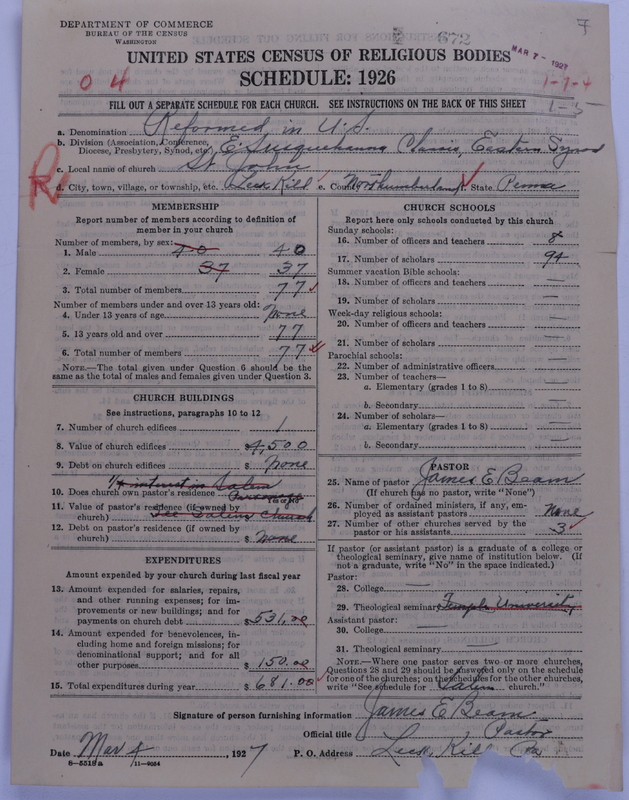 DEPARTMENT OF COMMERCE
BUREAU OF THE CENSUS
WASHINGTON
672
7
MAR 7 - 1927
UNITED STATES CENSUS OF RELIGIOUS BODIES
SCHEDULE: 1926
0 4
1-7-4
1-5
FILL OUT A SEPARATE SCHEDULE FOR EACH CHURCH. SEE INSTRUCTIONS ON THE BACK OF THIS SHEET
a. Denomination Reformed in U.S.
b. Division (Association, Conference, Diocese, Presbytery, Synod, etc.) E. Susquehanna Classis, Eastern Synod
c. Local name of church St. John
R
d. City, town, village, or township, etc. Leck Kill e. County Northumberland f. State Penna
MEMBERSHIP
Report number of members according to definition of member in your church
Number of members, by sex:
1. Male 40 40
2. Female 37 37
3. Total number of members 77
Number of members under and over 13 years old:
4. Under 13 years of age None
5. 13 years old and over 77
6. Total number of members 77
NOTE.—The total given under Question 6 should be the same as the total of males and females given under Question 3.
CHURCH BUILDINGS
See instructions, paragraphs 10 to 12
7. Number of church edifices 1
8. Value of church edifices $4,500
9. Debt on church edifices $ None
10. Does church own pastor's residence 1/4 interest in Salem Parsonage
Yes or No
11. Value of pastor's residence (if owned by church) See Salem Church
12. Debt on pastor's residence (if owned by church) $ None
EXPENDITURES
Amount expended by your church during last fiscal year
13. Amount expended for salaries, repairs, and other running expenses; for improvements or new buildings; and for payments on church debt $531.00
14. Amount expended for benevolences, including home and foreign missions; for denominational support; and for all other purposes $150.00
15. Total expenditures during year $681.00
CHURCH SCHOOLS
Report here only schools conducted by this church
Sunday schools:
16. Number of officers and teachers 8
17. Number of scholars 94
Summer vacation Bible schools:
18. Number of officers and teachers —
19. Number of scholars —
Week-day religious schools:
20. Number of officers and teachers —
21. Number of scholars —
Parochial schools:
22. Number of administrative officers —
23. Number of teachers—
a. Elementary (grades 1 to 8) —
b. Secondary —
24. Number of scholars—
a. Elementary (grades 1 to 8) —
b. Secondary —
PASTOR
25. Name of pastor James E Beam
(If church has no pastor, write "None")
26. Number of ordained ministers, if any, employed as assistant pastors None
27. Number of other churches served by the pastor or his assistants 3
If pastor (or assistant pastor) is a graduate of a college or theological seminary, give name of institution below. (If not a graduate, write "No" in the space indicated.)
Pastor:
28. College —
29. Theological seminary Temple University
Assistant pastor:
30. College —
31. Theological seminary —
NOTE.—Where one pastor serves two or more churches, Questions 28 and 29 should be answered only on the schedule for one of the churches; on the schedules for the other churches, write "See schedule for Salem church."
Signature of person furnishing information James E Beam
Official title Pastor
Date Mar 4, 1927 P. O. Address Leck Kill Pa
8-5518a 11-9024